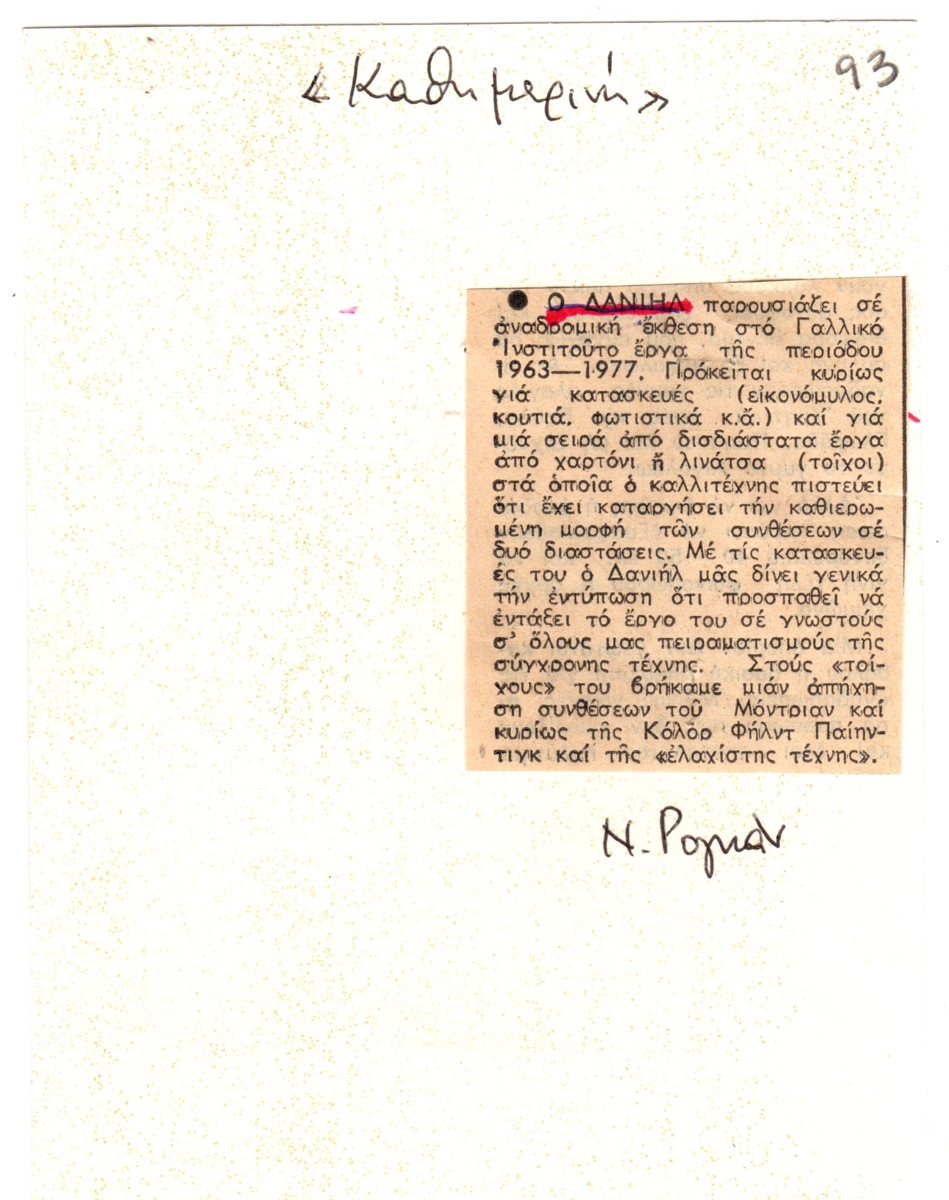 «Καθημερινή»
93
● Ο ΔΑΝΙΗΛ παρουσιάζει σέ
ἀναδρομική ἔκθεση στό Γαλλικό
Ἰνστιτοῦτο ἔργα τῆς περιόδου
1963—1977. Πρόκειται κυρίως
γιά κατασκευές (εἰκονόμυλος,
κουτιά, φωτιστικά κ.ἄ.) καί γιά
μιά σειρά ἀπό δισδιάστατα ἔργα
ἀπό χαρτόνι ἤ λινάτσα (τοῖχοι)
στά ὁποῖα ὁ καλλιτέχνης πιστεύει
ὅτι ἔχει καταργήσει τήν καθιερω-
μένη μορφή τῶν συνθέσεων σέ
δυό διαστάσεις. Μέ τίς κατασκευ-
ές του ὁ Δανιήλ μᾶς δίνει γενικά
τήν ἐντύπωση ὅτι προσπαθεῖ νά
ἐντάξει τό ἔργο του σέ γνωστούς
σ' ὅλους μας πειραματισμούς τῆς
σύγχρονης τέχνης. Στούς «τοί-
χους» του βρήκαμε μιάν ἀπήχη-
ση συνθέσεων τοῦ Μόντριαν καί
κυρίως τῆς Κόλορ Φήλντ Παίην-
τιγκ καί τῆς «ἐλαχίστης τέχνης».
Ν. Ρογκάν